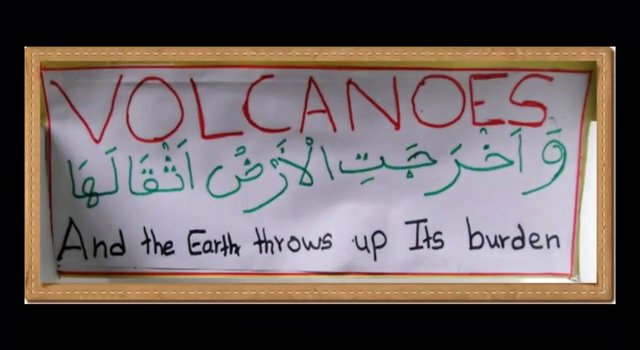 VOLCANOES
وَ اَخْرَجَتِ الْاَرْضُ اَثْقَالَهَا
And the Earth throws up Its burden